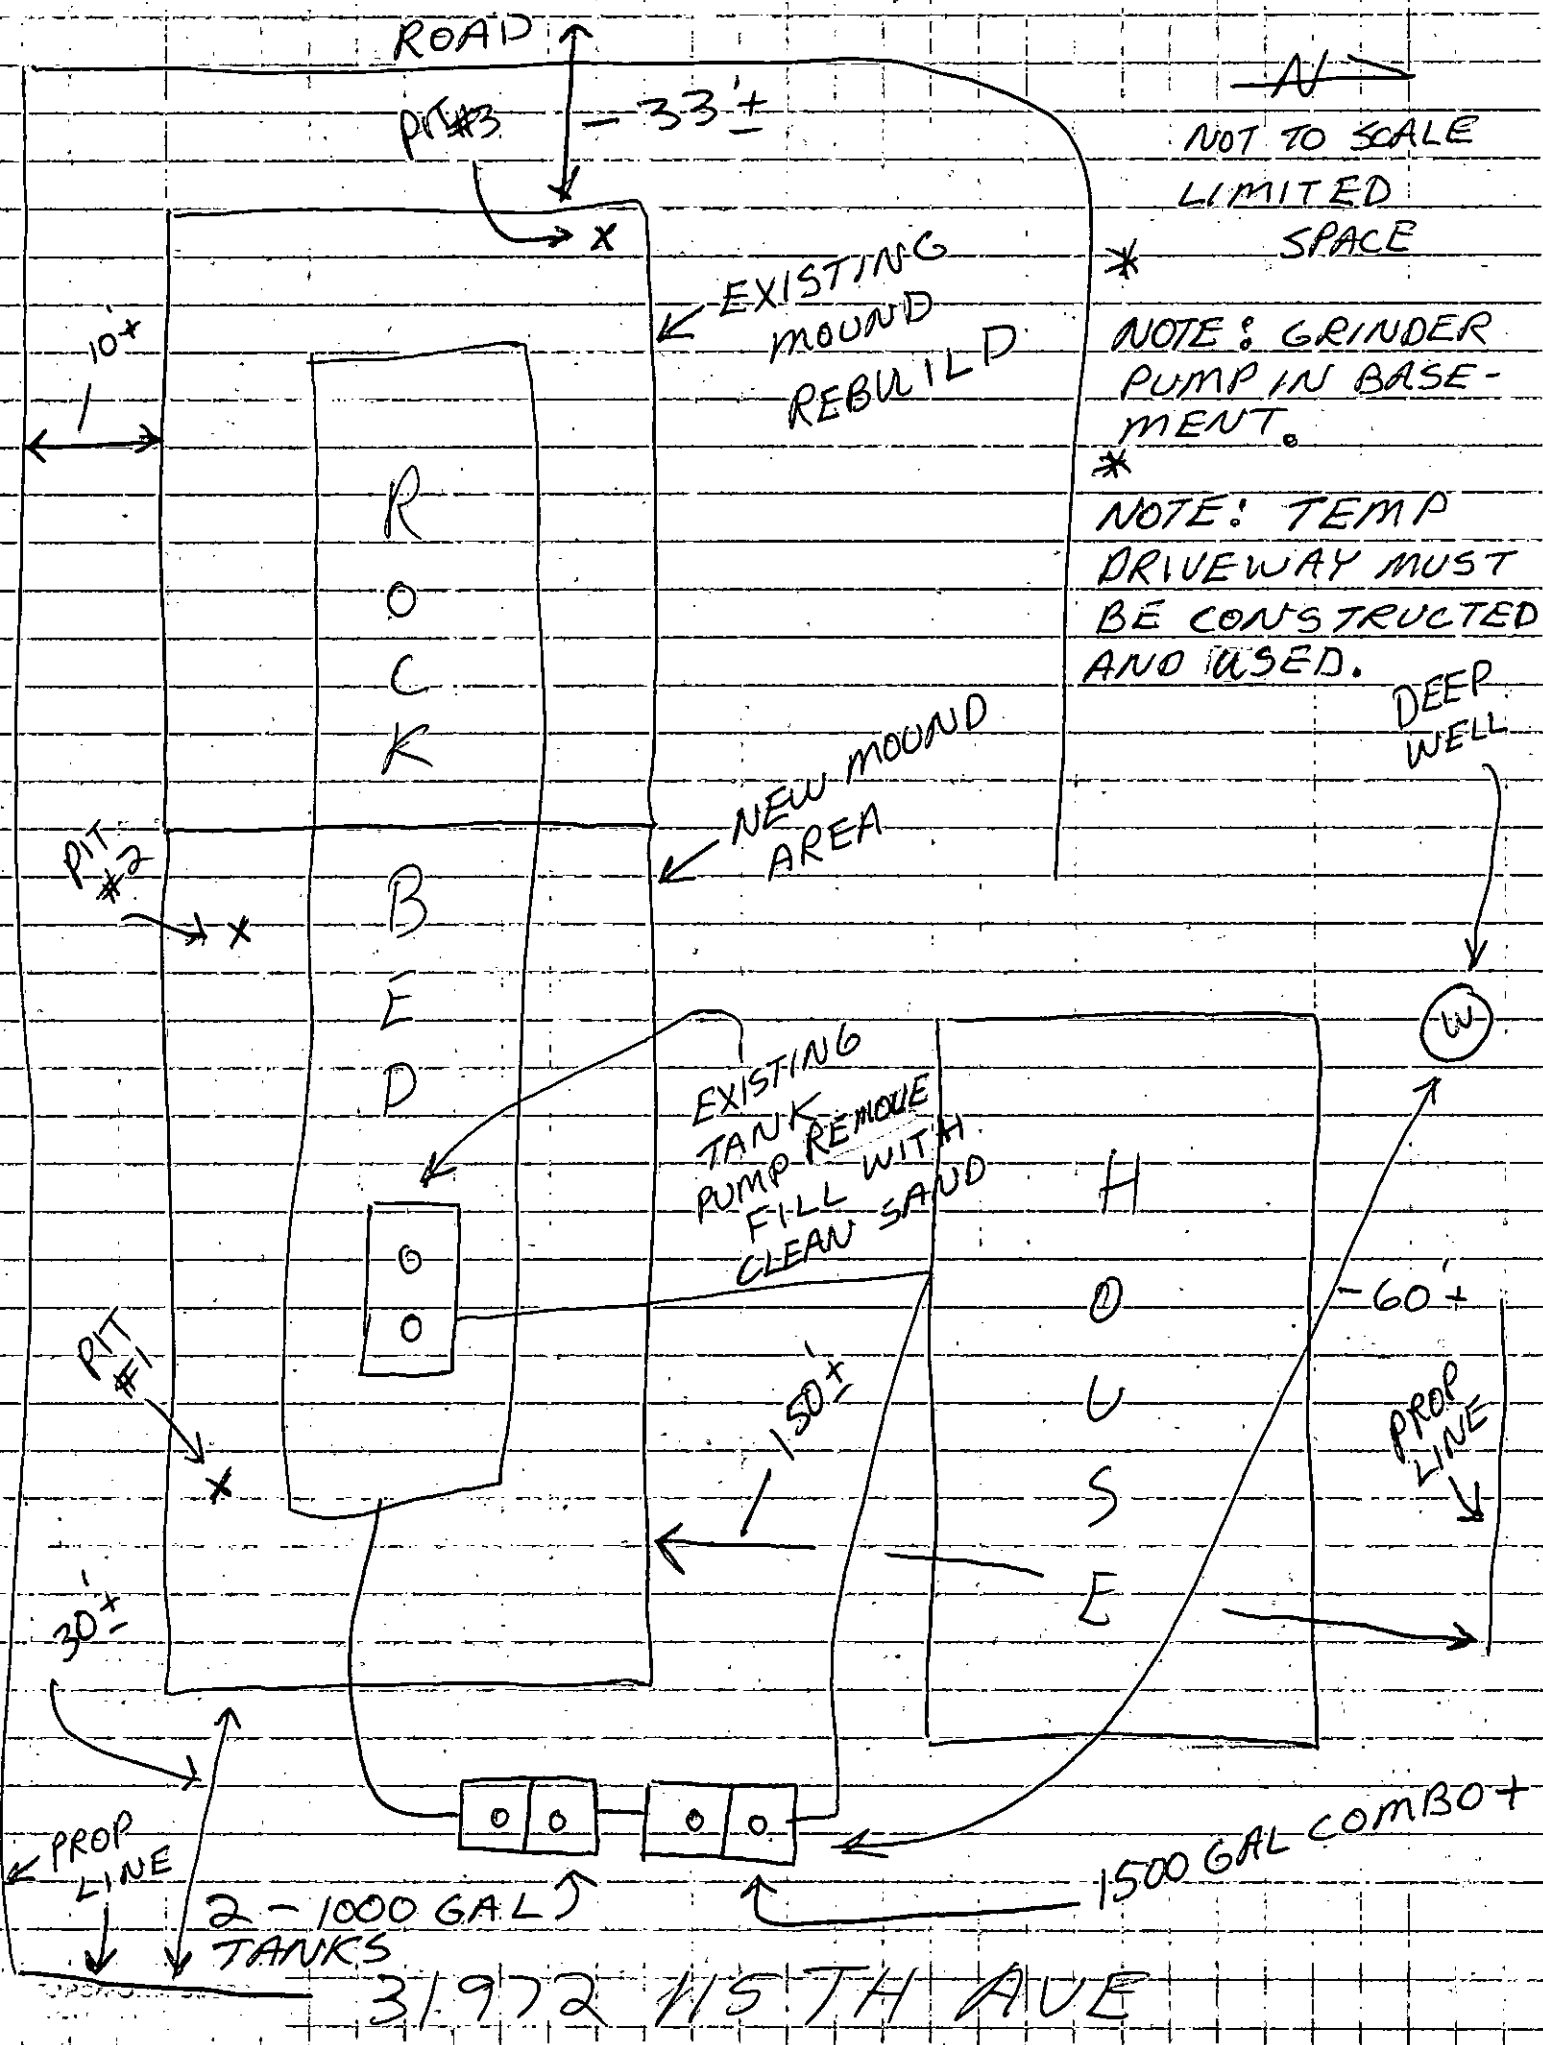 ROAD
N
PIT #3
- 33'±
NOT TO SCALE
LIMITED
SPACE
*
10'±
EXISTING
MOUND
REBUILD
NOTE: GRINDER
PUMP IN BASE-
MENT.
*
NOTE: TEMP
DRIVEWAY MUST
BE CONSTRUCTED
AND USED.
X
ROCK
BED
DEEP
WELL
NEW MOUND
AREA
PIT
#2
X
W
EXISTING
TANK
PUMP REMOVE
FILL WITH
CLEAN SAND
HOUSE
- 60'±
PIT
#1
X
150'±
PROP
LINE
30'±
PROP
LINE
2 - 1000 GAL
TANKS
1500 GAL COMBO +
31972 115TH AVE